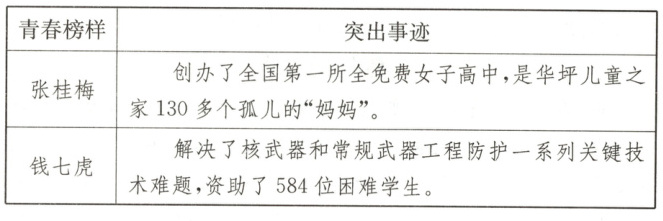 青春榜样 突出事迹
张桂梅
创办了全国第一所全免费女子高中,是华坪儿童之
家130多个孤儿的“妈妈”。
钱七虎
解决了核武器和常规武器工程防护一系列关键技
术难题,资助了584位困难学生。